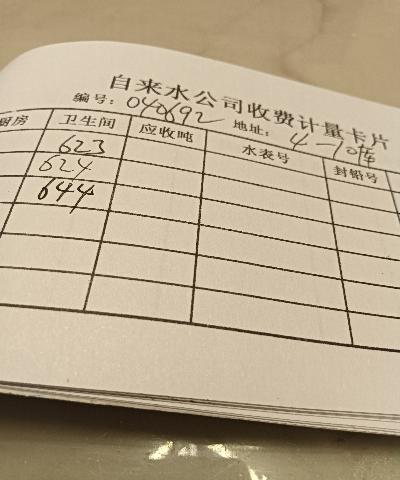 自来水公司收费计量卡片
编号: 040692 地址: 4-10库
厨房 卫生间 应收吨 水表号 封铅号
623
624
644